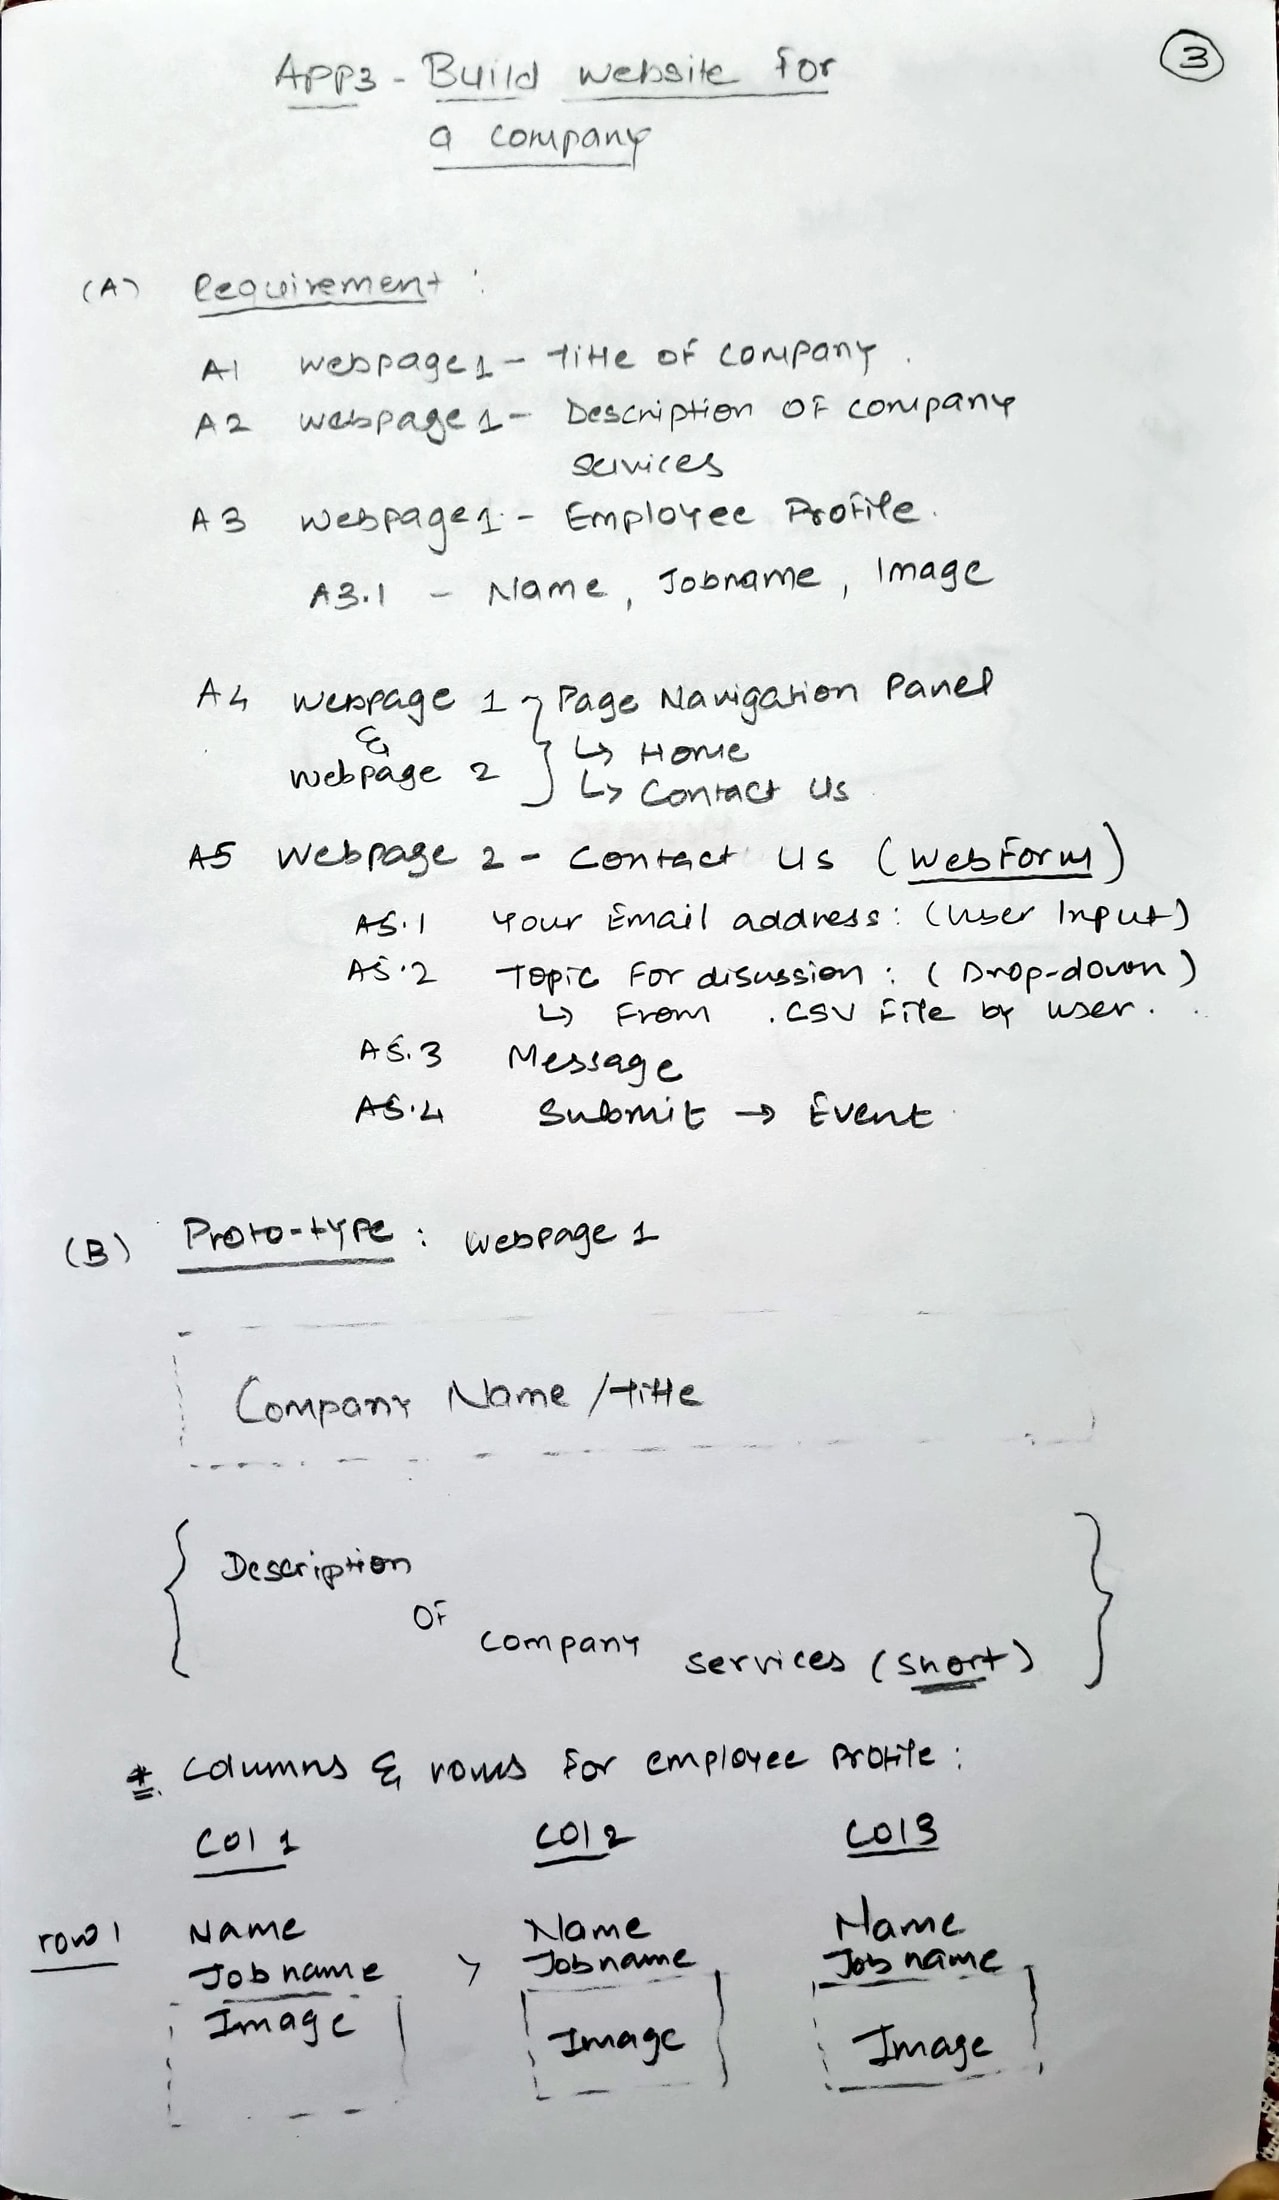 3
App3 - Build website for
a company
(A) Requirement :
A1 webpage1 - Title of company.
A2 webpage 1 - Description of company
services
A3 webpage1 - Employee Profile.
A3.1 - Name, Jobname, Image
A4 webpage 1 } Page Navigation Panel
& ↳ Home
webpage 2 ↳ Contact Us
A5 Webpage 2 - Contact Us (webform)
A5.1 Your Email address: (User Input)
A5.2 Topic for disussion : (Drop-down)
↳ From .csv file by user.
A5.3 Message
A5.4 Submit → Event
(B) Proto-type : webpage 1
Company Name /title
{ Description }
of
company
services (short)
* Columns & rows for employee profile :
Col 1 Col 2 Col3
row 1 Name Name Name
Job name > Jobname Job name
Image Image Image